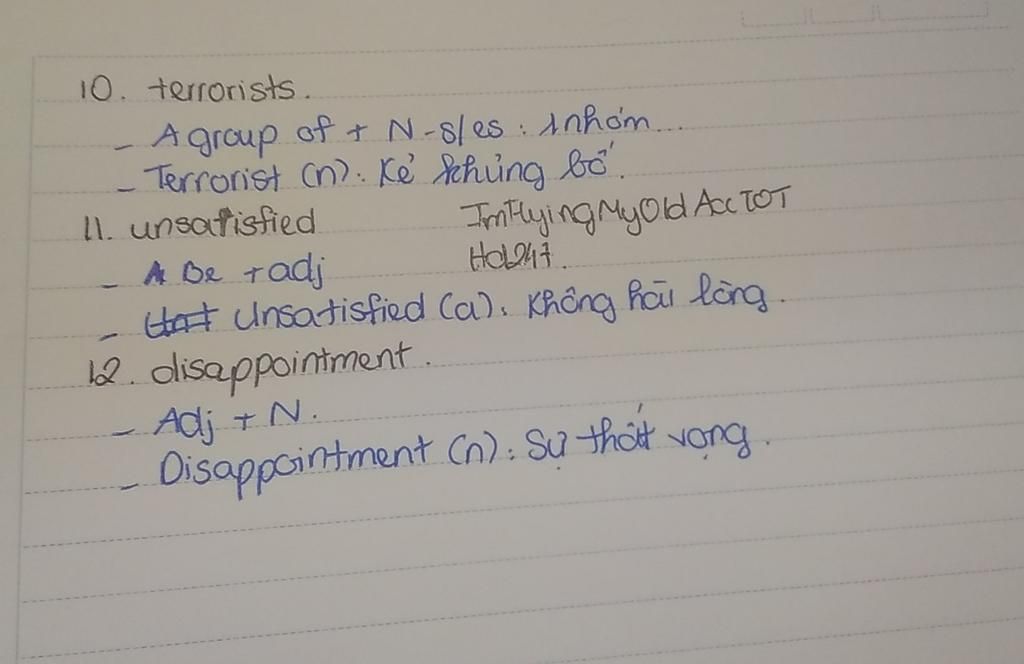 10. terrorists.
- A group of + N-s/es : 1 nhóm...
- Terrorist (n): Kẻ khủng bố.
11. unsatisfied
ImFlyingMyOldAccTOT
- Be + adj
- Unsatisfied (a): Không hài lòng.
12. disappointment.
- Adj + N.
- Disappointment (n): Sự thất vọng.